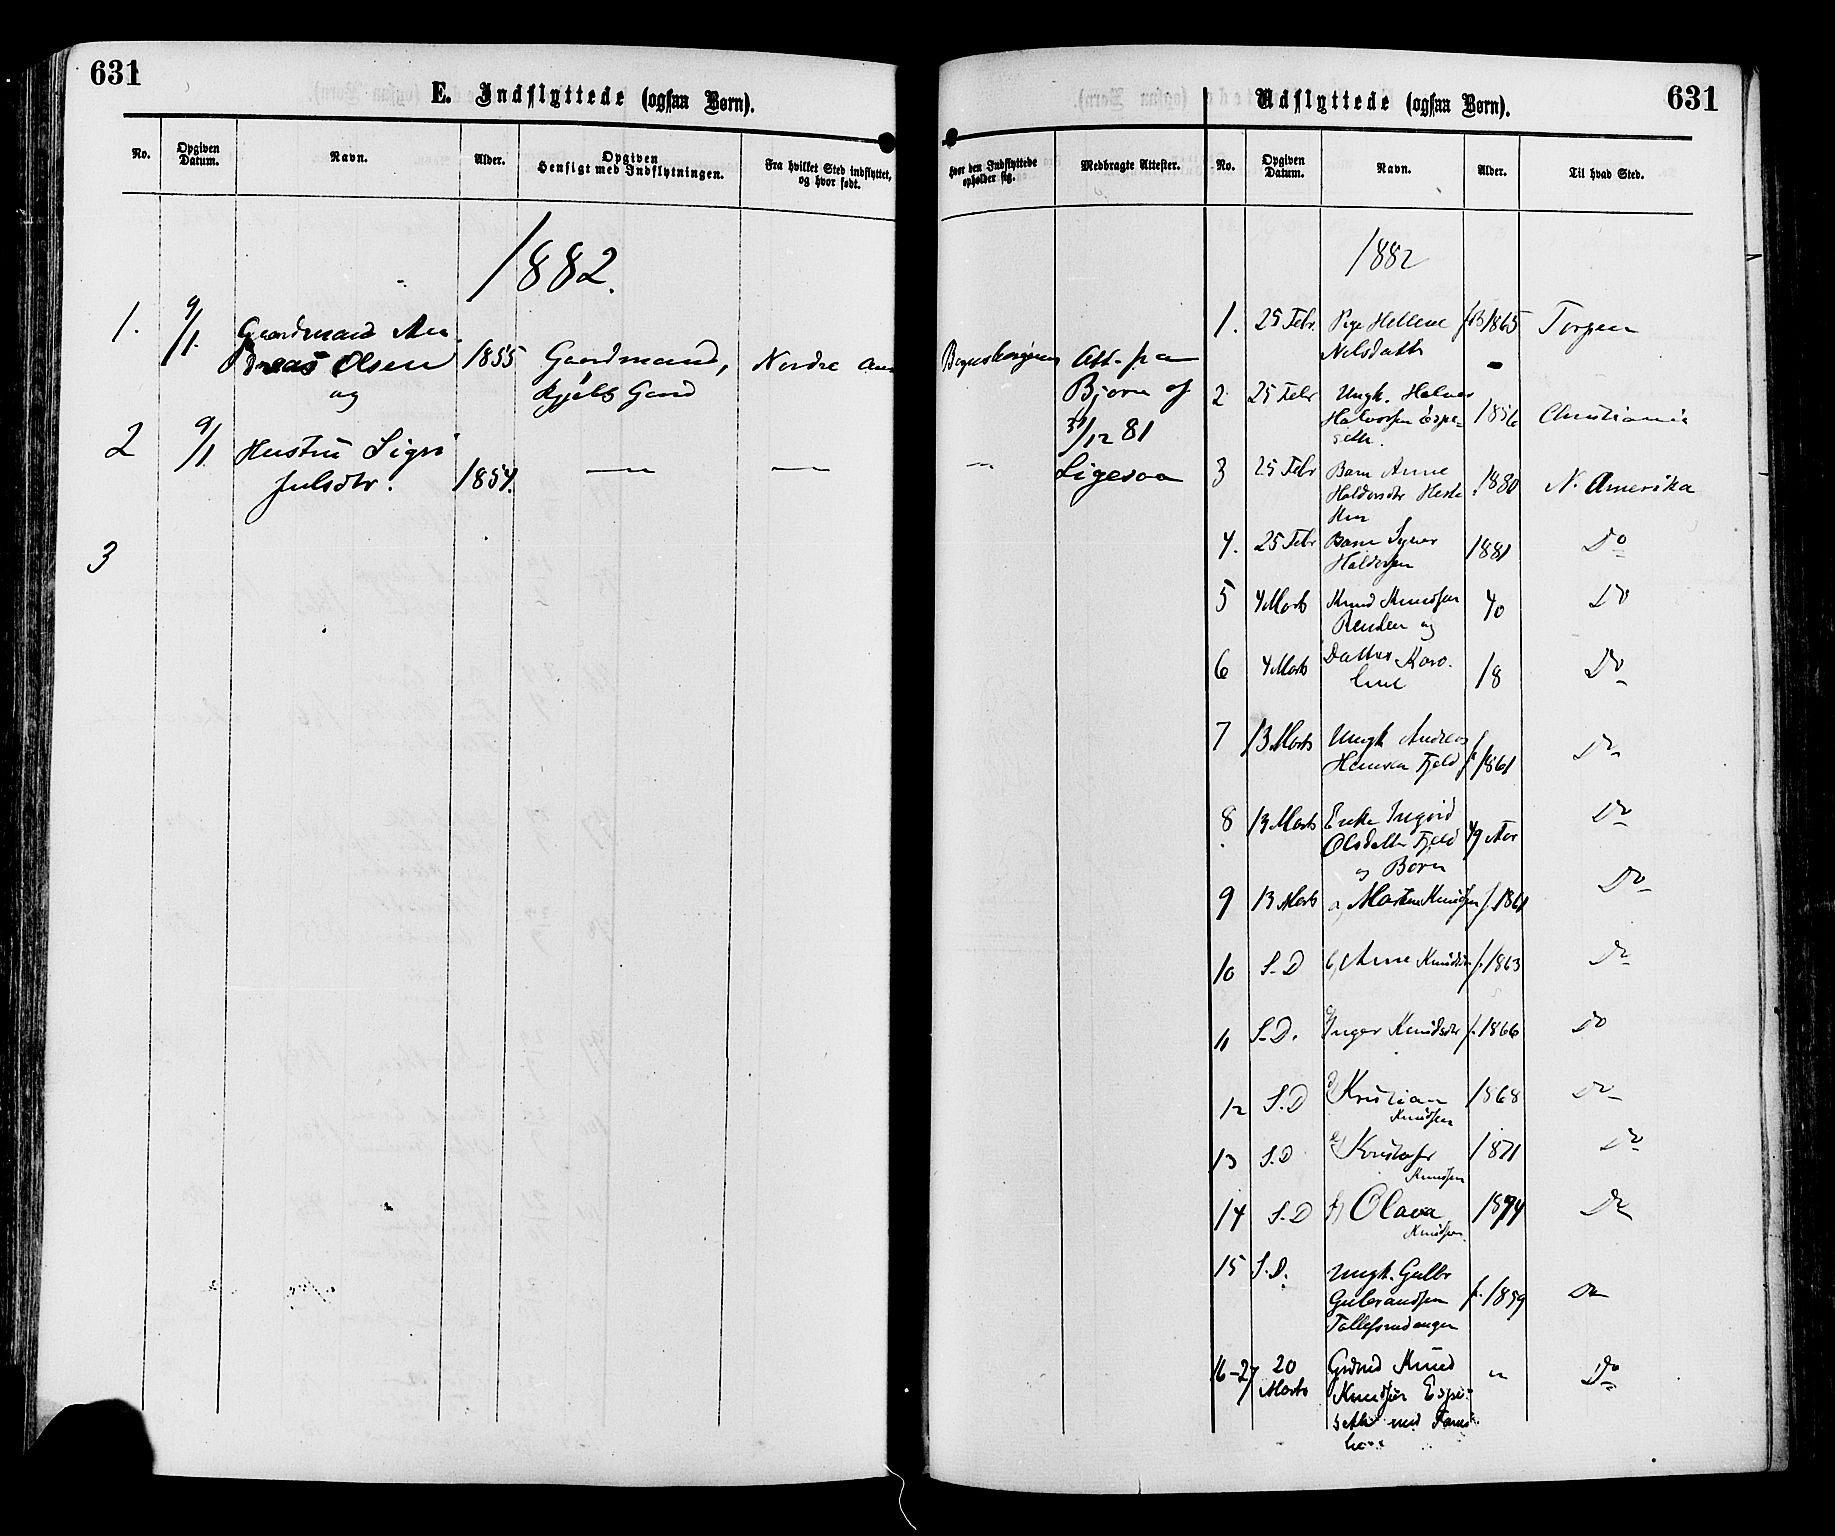 631
E. Indflyttede (ogsaa Børn).
No.
Opgiven Datum.
Navn.
Alder.
Opgiven Hensigt med Indflytningen.
Fra hvilket Sted indflyttet, og hvor født.
1882.
1. 9/1. Gaardmand An
dreas Olsen 1855 Gaardmand, Nordre
og Gaard
2 9/1. Hustru Sigri
Julsdtr. 1854. — —
3
631
Udflyttede (ogsaa Børn).
hvor den Indflyttede opholder sig.
Medbragte Attester.
No.
Opgiven Datum.
Navn.
Alder.
Til hvad Sted.
Att. fra
Bjørn af
31/12 81
— Ligesaa
1882
1. 25 Febr. Pige Hellene 1865 Torpen
Nilsdatter
2 25 Febr Ungk. Halvor
Halvorsen Espe- 1856 Christiania
seth.
3 25 Febr Barn Anne 1880 N. Amerika
Haldorsdtr
4. 25 Febr Barn 1881 Do
Haldorsen
5 4 Marts Knud Knudsen 40 Do
og
6 4 Marts Datter Karo- 18 Do
line
7 13 Marts Ungk Andreas
Hansen Fjeld f 1861 Do
8 13 Marts Enke Ingrid Do
Olsdatter Fjeld 49 Aar
og Børn
9 13 Marts a, Marten Knudsen f. 1861 Do
10 S.D b, Anne Knudsdtr f. 1863 Do
11 S.D. c, Inger Knudsdtr f. 1866 Do
12 S.D d, Kristian 1868 Do
Knudsen
13 S.D e, Kristofer 1871 Do
Knudsen
14 S.D f) Olava 1874 Do
Knudsen
15 S.D. Ungk. Gulbr
Gulbrandsen f. 1859 Do
Tollefsrudengen
16-27 20 Grdmd Knud " Do
Marts Knudsen Espe-
seth med Fami-